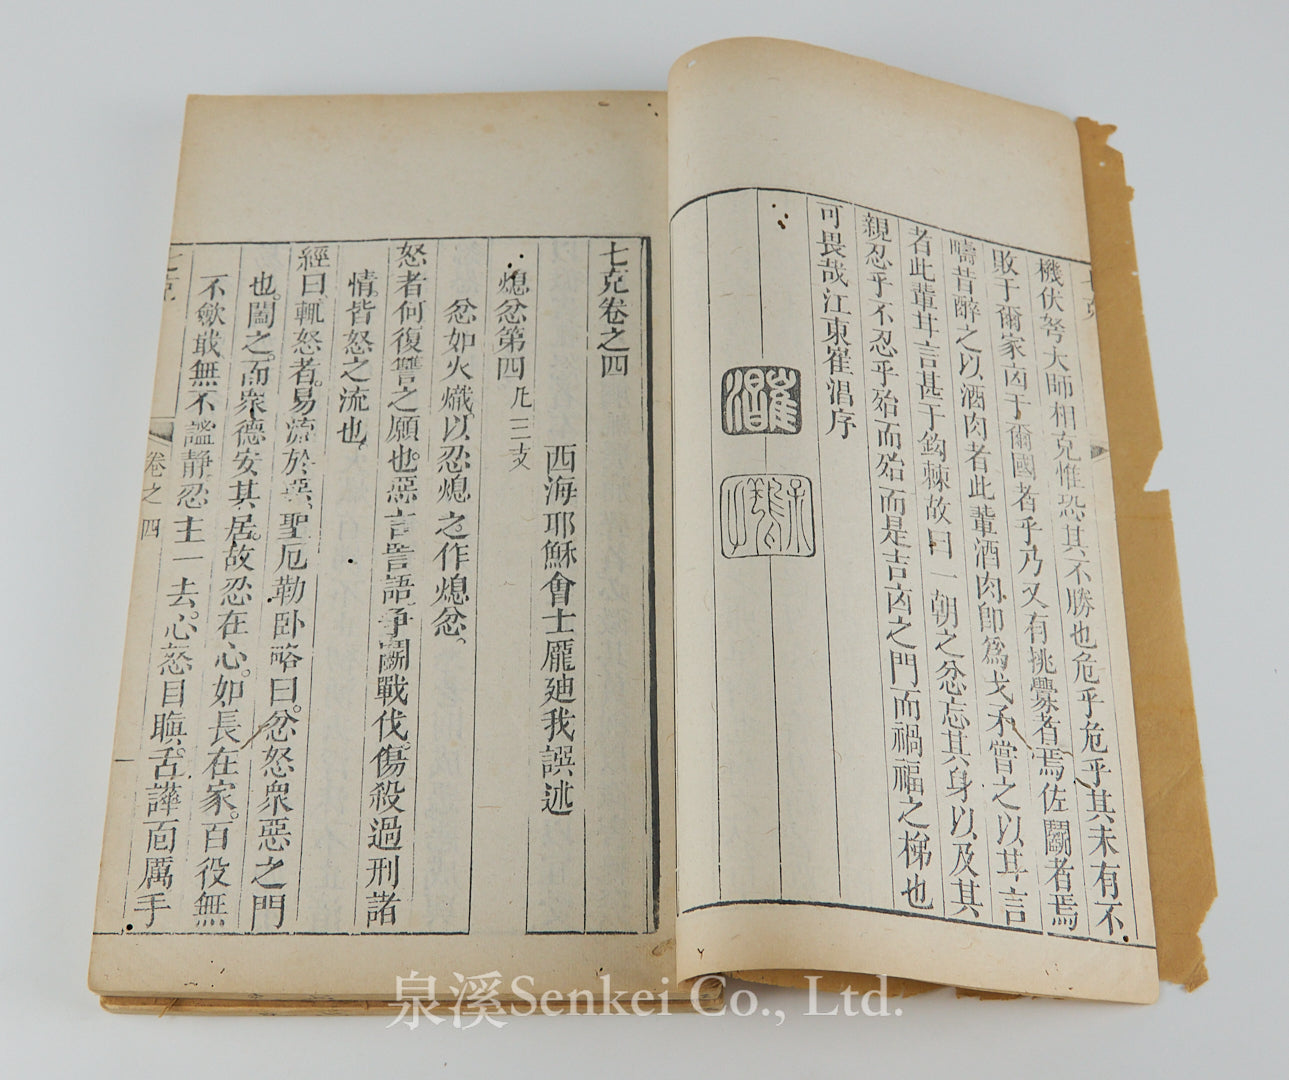 機伏弩大師相克惟恐其不勝也危乎危乎其未有不
敗于爾家凶于爾國者乎乃又有挑釁者焉佐鬭者焉
疇昔醉之以酒肉者此輩酒肉卽為戈矛嘗之以甘言
者此輩甘言甚于鈎棘故曰一朝之忿忘其身以及其
親忍乎不忍乎殆而殆而是吉凶之門而禍福之梯也
可畏哉江東崔淐序
七克卷之四
西海耶穌會士龐廸我譔述
熄忿第四凡三支
忿如火熾以忍熄之作熄忿。
怒者何復讐之願也。惡言詈語爭鬭戰伐。傷殺過刑諸
情。皆怒之流也。
經曰。輒怒者。易流於惡。聖厄勒卧略曰。忿怒衆惡之門
也。闔之。而衆德安其居。故忍在心。如長在家。百役無
不歛戢無不謐靜。忍主一去。心怒目瞋。舌譁面厲手
七克
卷之四
泉溪Senkei Co., Ltd.